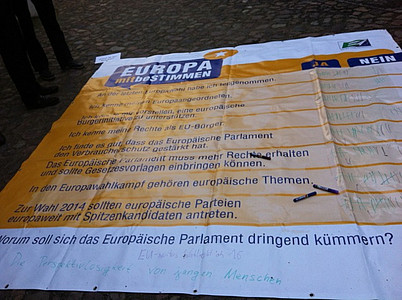 EUROPA
mitBESTIMMEN
JA
NEIN
habe ich teilgenommen.
Ich kenne einen Europaabgeordneten.
eine europäische
Bürgerinitiative unterstützen.
Ich kenne meine Rechte als EU-Bürger.
Ich finde es gut, dass das Europäische Parlament
den Verbraucherschutz gestärkt hat.
Das Europäische Parlament muss mehr Rechte erhalten
und sollte Gesetzesvorlagen einbringen können.
In den Europawahlkampf gehören europäische Themen.
Zur Wahl 2014 sollten europäische Parteien
europaweit mit Spitzenkandidaten antreten.
Worum soll sich das Europäische Parlament dringend kümmern?
von jungen Menschen